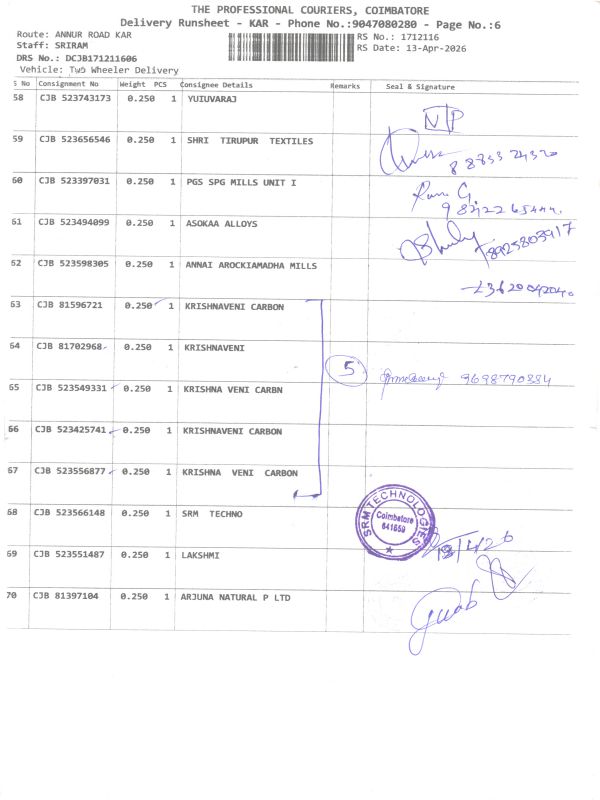 THE PROFESSIONAL COURIERS, COIMBATORE
Delivery Runsheet - KAR - Phone No.:9047080280 - Page No.:6
Route: ANNUR ROAD KAR
RS No.: 1712116
Staff: SRIRAM
RS Date: 13-Apr-2026
DRS No.: DCJB171211606
Vehicle: Two Wheeler Delivery
S No Consignment No Weight PCS Consignee Details Remarks Seal & Signature
58 CJB 523743173 0.250 1 YUIUVARAJ
59 CJB 523656546 0.250 1 SHRI TIRUPUR TEXTILES
60 CJB 523397031 0.250 1 PGS SPG MILLS UNIT I
61 CJB 523494099 0.250 1 ASOKAA ALLOYS
8925803917
62 CJB 523598305 0.250 1 ANNAI AROCKIAMADHA MILLS
63 CJB 81596721 0.250 1 KRISHNAVENI CARBON
64 CJB 81702968 0.250 1 KRISHNAVENI
5
65 CJB 523549331 0.250 1 KRISHNA VENI CARBN
66 CJB 523425741 0.250 1 KRISHNAVENI CARBON
67 CJB 523556877 0.250 1 KRISHNA VENI CARBON
68 CJB 523566148 0.250 1 SRM TECHNO
SRM TECHNOLOGIES
Coimbatore
641659
13/4/26
69 CJB 523551487 0.250 1 LAKSHMI
70 CJB 81397104 0.250 1 ARJUNA NATURAL P LTD